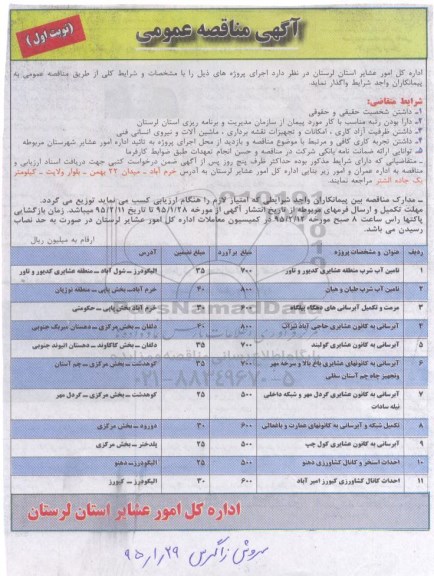 آگهی مناقصه عمومی
(نوبت اول)
اداره کل امور عشایر استان لرستان در نظر دارد اجرای پروژه های ذیل را با مشخصات و شرایط کلی از طریق مناقصه عمومی به
پیمانکاران واجد شرایط واگذار نماید.
شرایط متقاضی:
۱ـ داشتن شخصیت حقیقی و حقوقی
۲ـ دارا بودن رتبه مناسب با کار مورد پیمان از سازمان مدیریت و برنامه ریزی استان لرستان
۳ـ داشتن ظرفیت آزاد کاری ، امکانات و تجهیزات نقشه برداری ، ماشین آلات و نیروی انسانی فنی
۴ـ داشتن تجربه کاری کافی و مرتبط با موضوع مناقصه و بازدید از محل اجرای پروژه به تائید اداره امور عشایر شهرستان مربوطه
۵ـ توانائی ارائه ضمانت نامه بانکی شرکت در مناقصه و حسن انجام تعهدات طبق ضوابط کارفرما
ـ متقاضیانی که دارای شرایط مذکور بوده حداکثر ظرف پنج روز پس از آگهی ضمن درخواست کتبی جهت دریافت اسناد ارزیابی و
مناقصه به اداره عمران و امور زیر بنایی اداره کل امور عشایر لرستان به آدرس خرم آباد ـ میدان ۲۲ بهمن ـ بلوار ولایت ـ کیلومتر
یک جاده الشتر مراجعه نمایند.
ـ مدارک مناقصه بین پیمانکاران واجد شرایطی که امتیاز لازم را هنگام ارزیابی کسب می نماید توزیع می گردد.
مهلت تکمیل و ارسال فرمهای مربوطه از تاریخ انتشار آگهی از مورخه ۹۵/۱/۲۸ تا تاریخ ۹۵/۲/۱۱ میباشد. زمان بازگشایی
پاکتها راس ساعت ۸ صبح مورخه ۹۵/۲/۱۲ در کمیسیون معاملات اداره کل امور عشایر لرستان در صورت به حد نصاب
رسیدن می باشد.
ارقام به میلیون ریال
ردیف عنوان و مشخصات پروژه مبلغ برآورد مبلغ تضمین آدرس
۱ تامین آب شرب منطقه عشایری کدیور و تاور ۷۰۰ ۳۵ الیگودرز ـ شول آباد ـ منطقه عشایری کدیور و تاور
۲ تامین آب شرب علیان و هیان ۸۰۰ ۴۰ خرم آباد ـ بخش پاپی ـ منطقه نوژیان
۳ مرمت و تکمیل آبرسانی های دهگاه بیلگاه ۶۰۰ ۳۰ خرم آباد بخش پاپی ـ حکومتی
۴ آبرسانی به کانون عشایری حاجی آباد تیراب ۸۰۰ ۴۰ دلفان ـ بخش مرکزی ـ دهستان میربگ جنوبی
۵ آبرسانی به کانون عشایری کولیند ۷۰۰ ۳۵ دلفان ـ بخش کاکاوند ـ دهستان ایتیوند جنوبی
۶ آبرسانی به کانونهای عشایری باغ بالا و سرخه مهر ۷۰۰ ۳۵ کوهدشت ـ بخش مرکزی ـ چم آستان
وتجهیز چاه چم آستان سفلی
۷ آبرسانی به کانون عشایری گردل مهر و شبکه داخلی ۵۰۰ ۲۵ کوهدشت ـ بخش مرکزی ـ گردل مهر
تیله سادات
۸ تکمیل شبکه و آبرسانی به کانونهای عمارت و باغفعالی ۶۰۰ ۳۰ دورود ـ بخش مرکزی
۹ آبرسانی به کانون عشایری کول چپ ۵۰۰ ۲۵ پلدختر ـ بخش مرکزی
۱۰ احداث استخر و کانال کشاورزی دهنو ۵۰۰ ۲۵ الیگودرز ـ دهنو
۱۱ احداث کانال کشاورزی گیورز امیر آباد ۶۰۰ ۳۰ الیگودرز ـ گیورز
اداره کل امور عشایر استان لرستان
ParsNamadData
۰۲۱-۸۸۳۴۹۶۷۰-۵
سروش زاگرس ۹۵٫۱٫۲۹